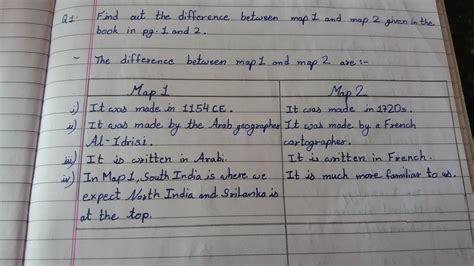 Q1. Find out the difference between map 1 and map 2 given in the
book in pg. 1 and 2.
- The difference between map 1 and map 2 are :-
Map 1 Map 2
i) It was made in 1154 CE. It was made in 1720s.
ii) It was made by the Arab geographer It was made by a French
Al-Idrisi. cartographer.
iii) It is written in Arabi. It is written in French.
iv) In Map 1, South India is where we It is much more familiar to us.
expect North India and Srilanka is
at the top.